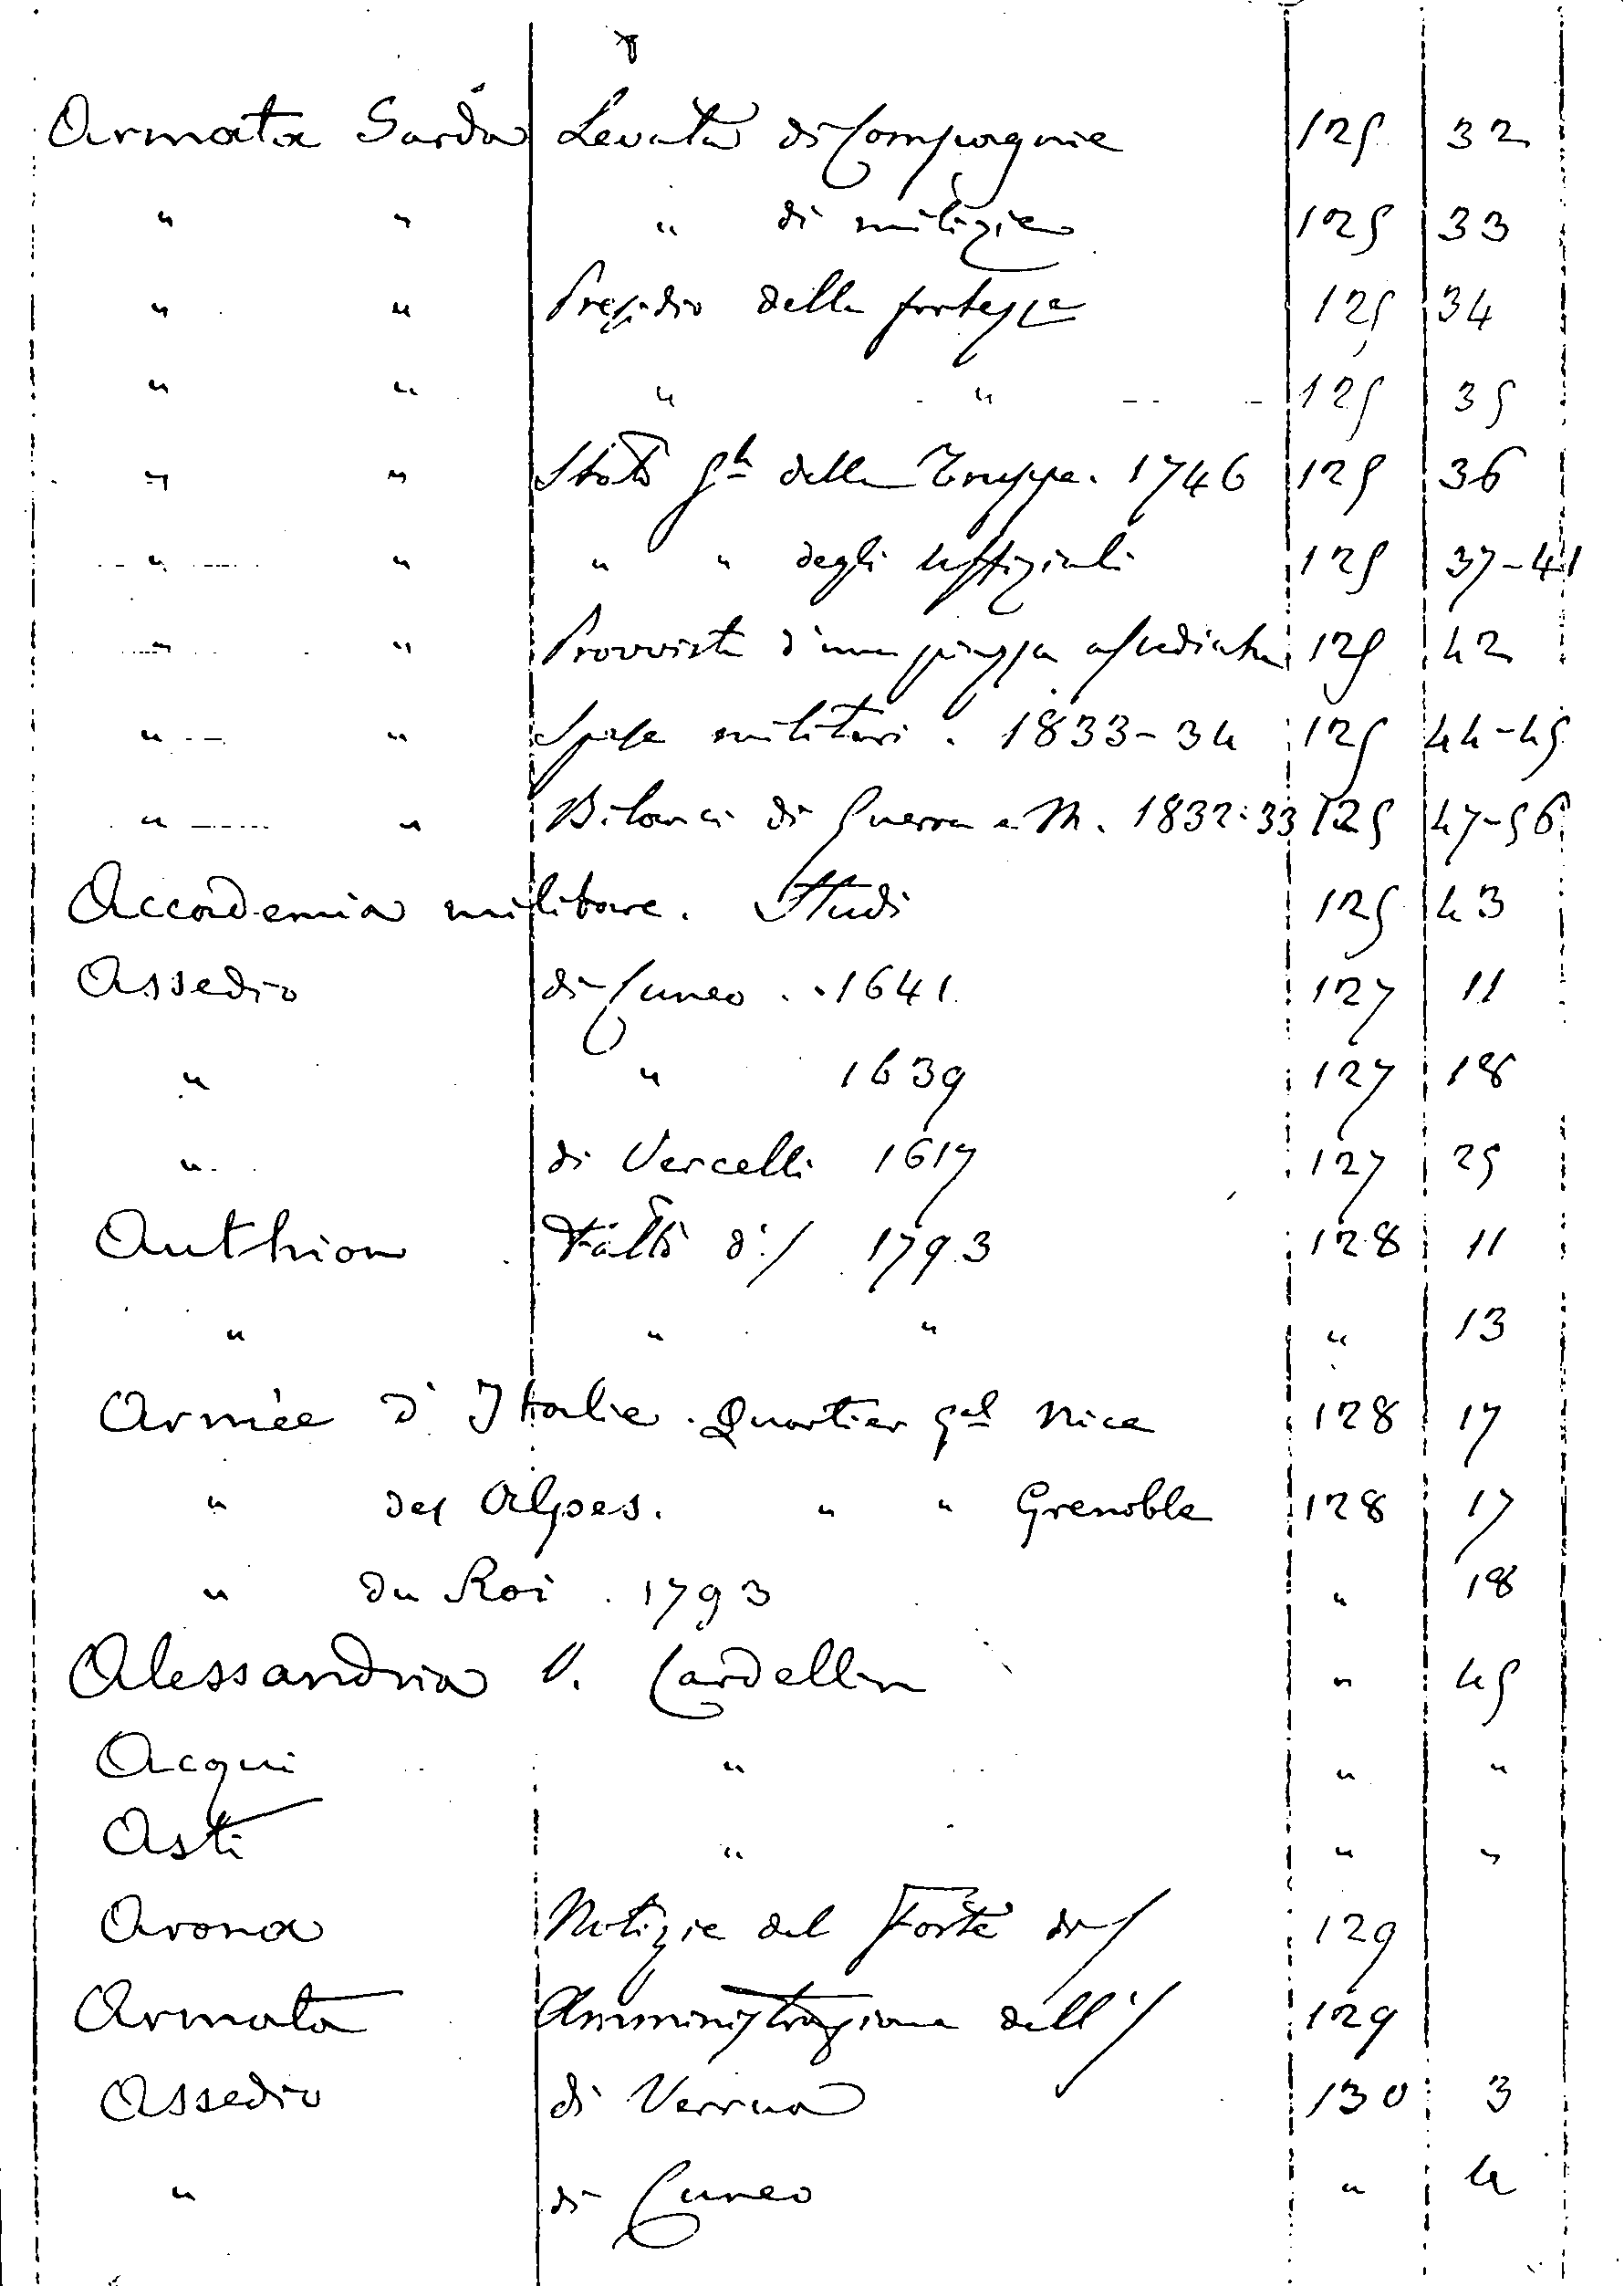 Armata Sarda Levata di Compagnie 125 32
" " " di milizie 125 33
" " Presidio delle fortezze 125 34
" " " " 125 35
" " Stato Gle delle Truppe. 1746 125 36
" " " " degli Uffiziali 125 37-41
" " Provvista d'una piazza assediata 125 42
" " Spese militari. 1833-34 125 44-45
" " Bilanci di Guerra e M. 1832:33 125 47-56
Accademia militare. Studi 125 43
Assedio di Cuneo . . 1641 127 11
" " 1639 127 18
" di Vercelli 1617 127 25
Authion Fatto d'/ 1793 128 11
" " " " 13
Armée d'Italie. Quartier Gal Nice 128 17
" des Alpes. " " Grenoble 128 17
" du Roi. 1793 " 18
Alessandria V. Cardellin " 45
Acqui " " "
Asti " " "
Arona Notizie del Forte di/ 129
Armata Amministrazione dell'/ 129
Assedio di Verrua 130 3
" di Cuneo " 4